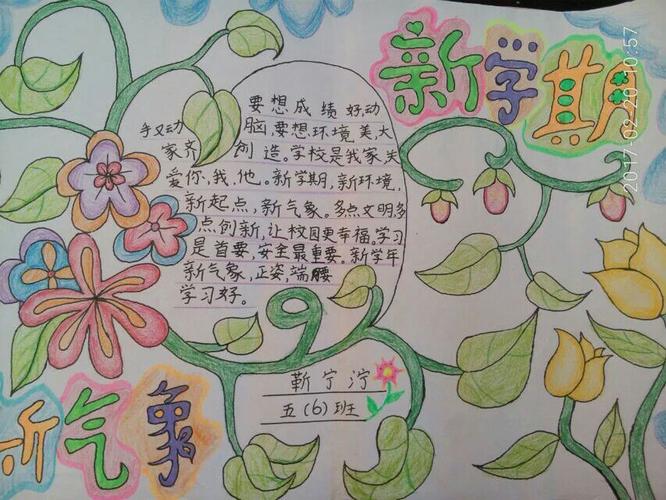 新学期
要想成绩好,动
手又动脑,要想环境美,大
家齐创造。学校是我家,关
爱你,我,他。新学期,新环境,
新起点,新气象。多点文明,多
点创新,让校园更幸福。学习
是首要,安全最重要。新学年
新气象,正姿,端腰
学习好。
靳宁泞
五(6)班
新气象
2017-02-20 10:57